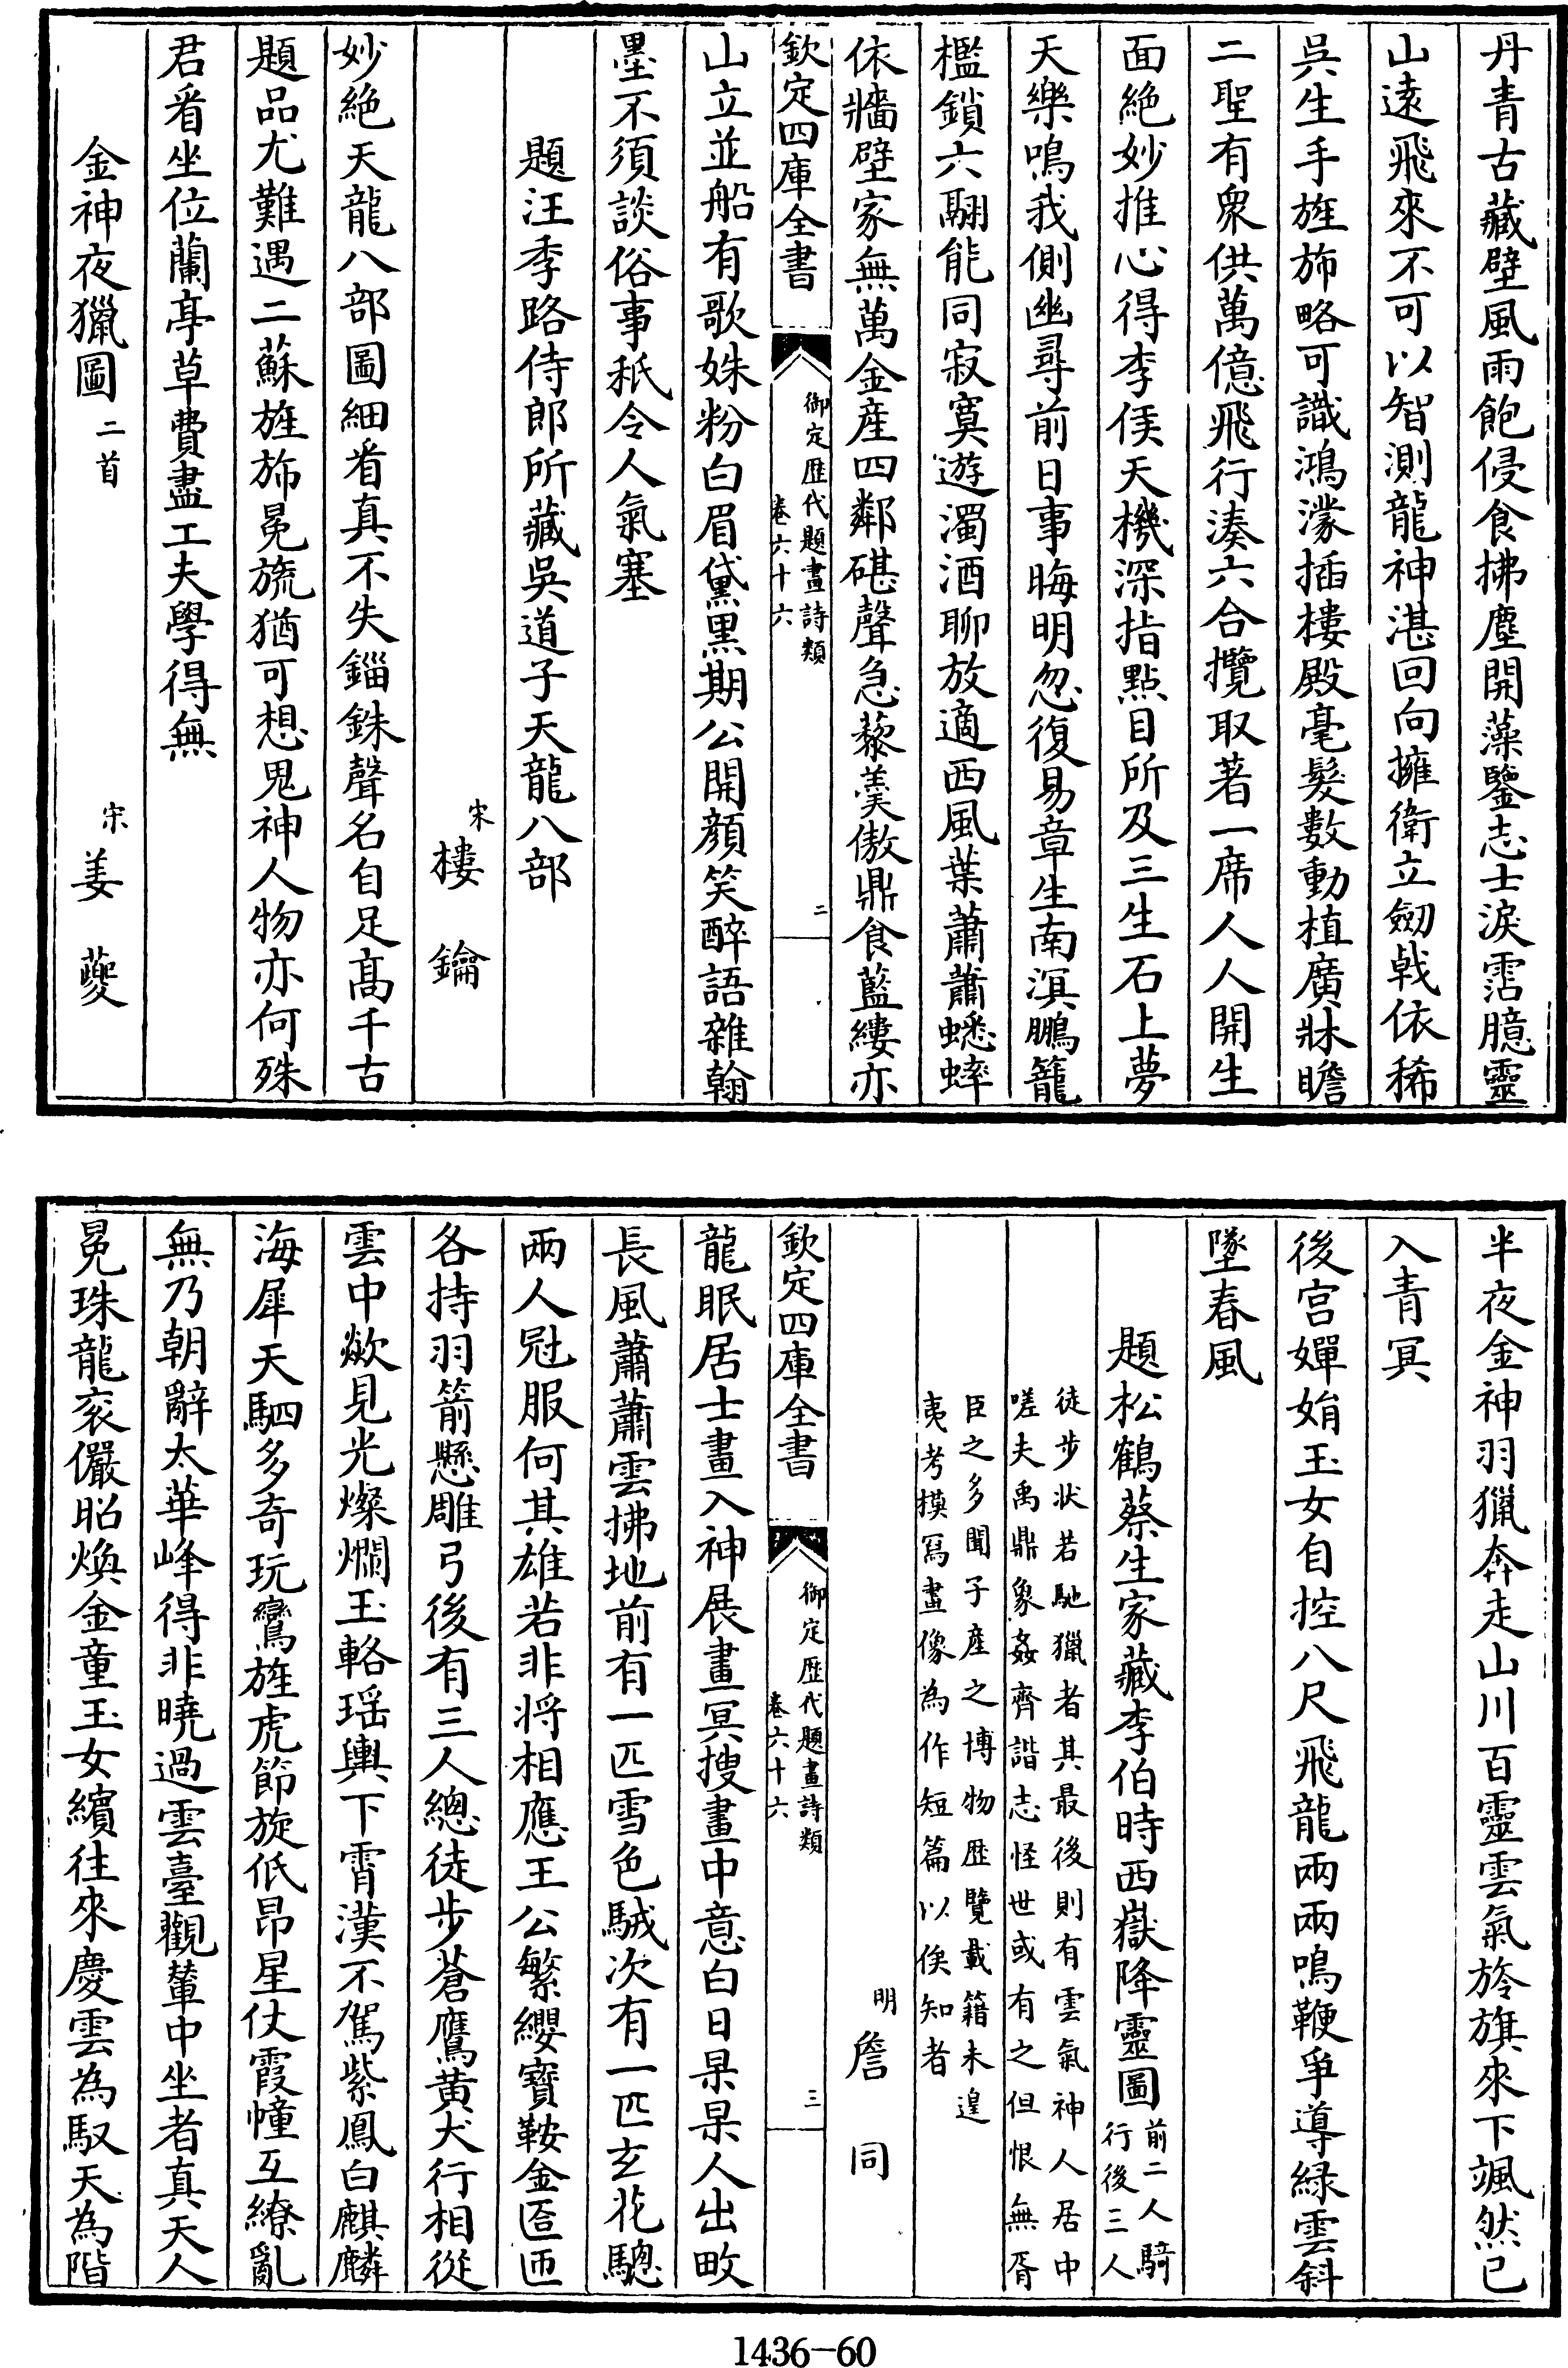 丹青古藏壁風雨飽侵食拂塵開藻鑒志士淚霑臆靈
山遠飛來不可以智測龍神湛回向擁衛立劒戟依稀
吳生手旌斾略可識鴻濛插樓殿毫髮數動植廣牀瞻
二聖有衆供萬億飛行湊六合攬取著一席人人開生
面絶妙推心得李侯天機深指點目所及三生石上夢
天樂鳴我側幽尋前日事晦明忽復易章生南溟鵬籠
檻鎖六翮能同寂寞遊濁酒聊放適西風葉蕭蕭蟋蟀
依牆壁家無萬金産四鄰碪聲急藜羹傲鼎食藍縷亦
欽定四庫全書
御定歷代題畫詩類
卷六十六
二
山立並船有歌姝粉白眉黛黑期公開顔笑醉語雜翰
墨不須談俗事秖令人氣塞
題汪季路侍郎所藏吳道子天龍八部
宋 樓鑰
妙絶天龍八部圖細看真不失錙銖聲名自足髙千古
題品尤難遇二蘇旌斾冕旒猶可想鬼神人物亦何殊
君看坐位蘭亭草費盡工夫學得無
金神夜獵圖二首 宋 姜夔
半夜金神羽獵奔走山川百靈雲氣旍旗來下颯然已
入青冥
後宫嬋娟玉女自控八尺飛龍兩兩鳴鞭爭導緑雲斜
墜春風
題松鶴蔡生家藏李伯時西嶽降靈圖前二人騎
行後三人
徒步状若馳獵者其最後則有雲氣神人居中
嗟夫禹鼎象姦齊諧志怪世或有之但恨無胥
臣之多聞子產之博物歴覽載籍未遑
夷考模冩畫像為作短篇以俟知者
明 詹同
欽定四庫全書
御定歷代題畫詩類
卷六十六
三
龍眠居士畫入神展畫冥搜畫中意白日杲杲人出畋
長風蕭蕭雲拂地前有一匹雪色駥次有一匹玄花驄
兩人冠服何其雄若非將相應王公繁纓寶鞍金匼匝
各持羽箭懸雕弓後有三人總徒步蒼鷹黄犬行相從
雲中歘見光燦爛玉輅瑶輿下霄漢不駕紫鳳白麒麟
海犀天駟多奇玩鸞旌虎節旋低昂星仗霞幢互繚亂
無乃朝辭太華峰得非曉過雲臺觀輦中坐者真天人
冕珠龍衮儼昭煥金童玉女繽往來慶雲為馭天為階
1436-60